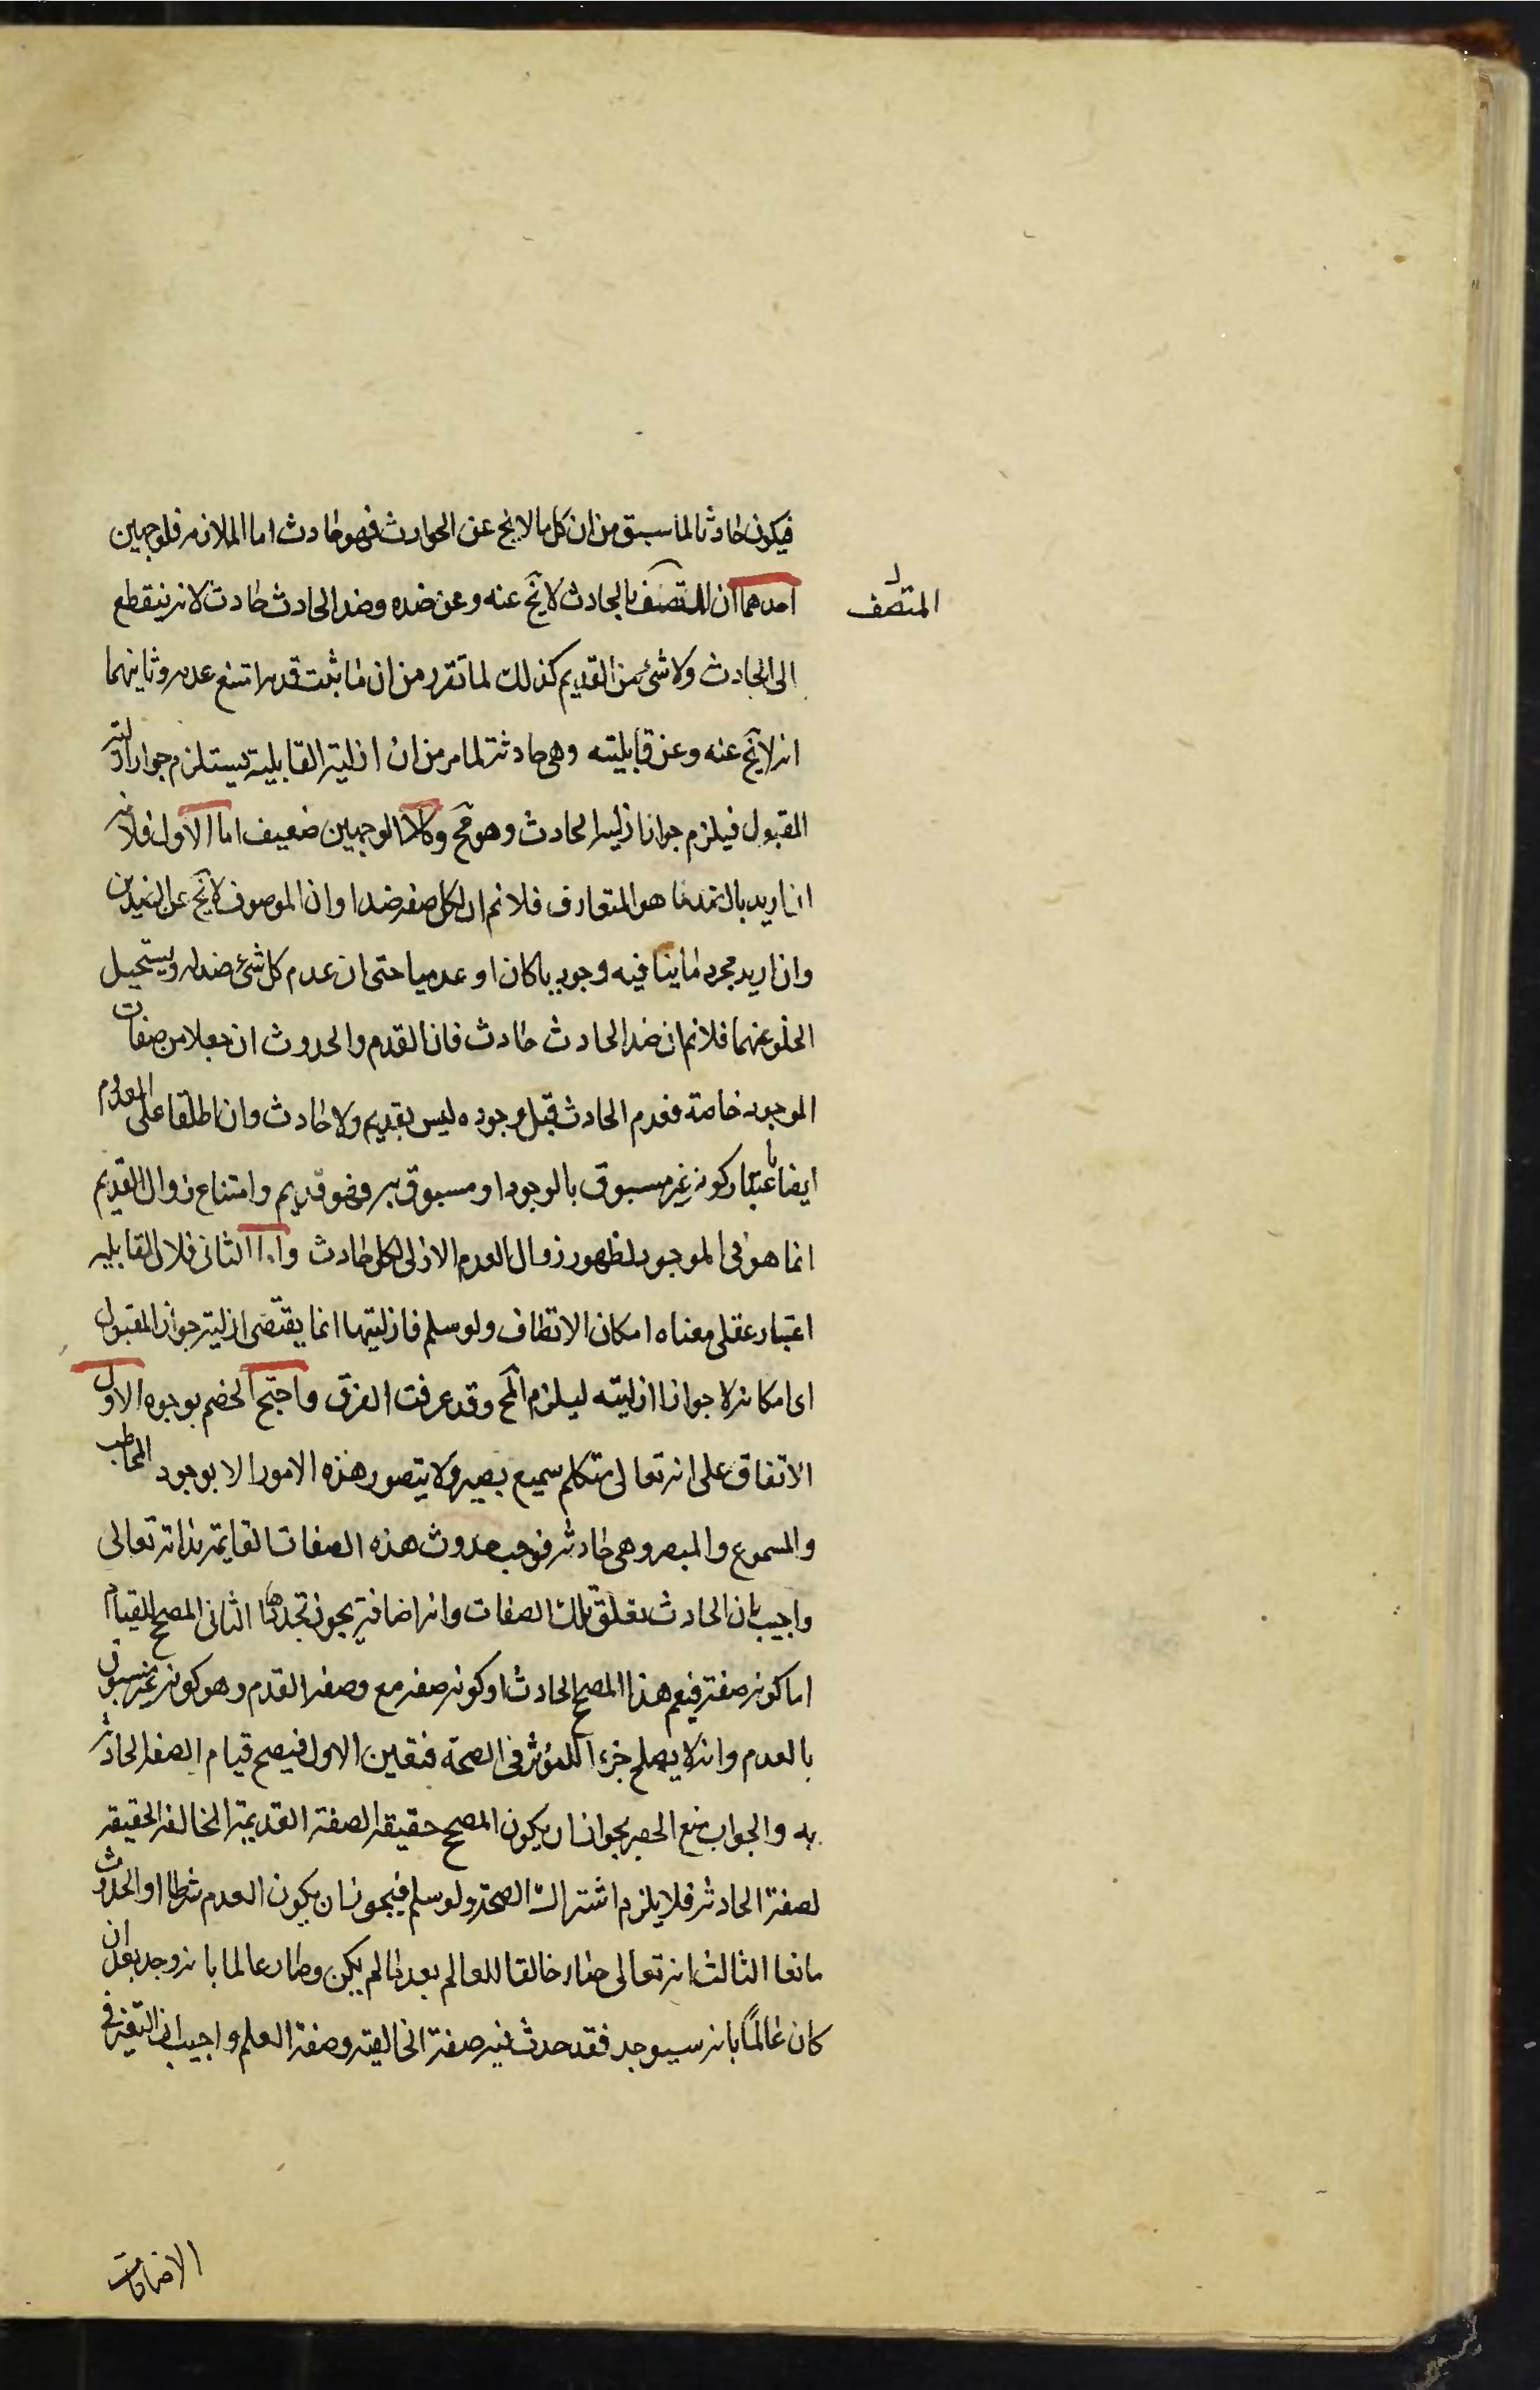 فيكون حادثا لما سبق من ان كل ما لا يخ عن الحوادث فهو حادث اما الملازمة فلوجهين
احدهما ان المتصف بالحادث لا يخ عنه وعن ضده وضد الحادث حادث لانه ينقطع
المتصف
الى الحادث ولا شئ من القديم كذلك لما تقرر من ان ما ثبت قدمه امتنع عدمه وثانيهما
انه لا يخ عنه وعن قابليته وهى حادثة لما مر من ان ازلية القابلية يستلزم جواز ازلية
المقبول فيلزم جواز ازلية الحادث وهو مح وكلا الوجهين ضعيف اما الاول فلانه
ان اريد بالضد ما هو المتعارف فلانم ان لكل صفة ضدا وان الموصوف لا يخ عن الضدين
وان اريد مجرد ما ينافيه وجوديا كان او عدميا حتى ان عدم كل شئ ضد له ويستحيل
الخلو عنهما فلانم ان ضد الحادث حادث فان القدم والحدوث ان جعلا من صفات
الموجود خاصة فعدم الحادث قبل وجوده ليس بقديم ولا حادث وان اطلقا على المعدوم
ايضا باعتبار كونه غير مسبوق بالوجود او مسبوق به فهو قديم وامتناع زوال القديم
انما هو فى الموجود لظهور زوال العدم الازلى لكل حادث واما الثانى فلان القابلية
اعتبار عقلى معناه امكان الاتصاف ولو سلم فازليتها انما يقتضى ازلية جواز المقبول
اى امكانه لا جواز ازليته ليلزم المح وقد عرفت الفرق واحتج الخصم بوجوه الاول
الاتفاق على انه تعالى متكلم سميع بصير ولا يتصور هذه الامور الا بوجود المخاطب
والمسموع والمبصر وهى حادثة فوجب حدوث هذه الصفات القايمة بذاته تعالى
واجيب بان الحادث تعلق تلك الصفات وانه اضافة يجوز تجددها الثانى المصحح للقيام
اما كونه صفة فيعم هذا المصحح الحادث او كونه صفة مع وصف القدم وهو كونه غير مسبوق
بالعدم وانه لا يصلح جزءا للمؤثر فى الصحة فتعين الاول فيصح قيام الصفة الحادثة
به والجواب منع الحصر بجواز ان يكون المصحح حقيقة الصفة القديمة المخالفة لحقيقة
لصفة الحادثة فلا يلزم اشتراك الصحة ولو سلم فيجوز ان يكون القدم شرطا او الحدوث
مانعا الثالث انه تعالى صار خالقا للعالم بعد ما لم يكن وصار عالما بانه وجد بعد ان
كان عالمًا بانه سيوجد فقد حدث فيه صفة الخالقية وصفة العلم واجيب ان التغير فى
الاضافات